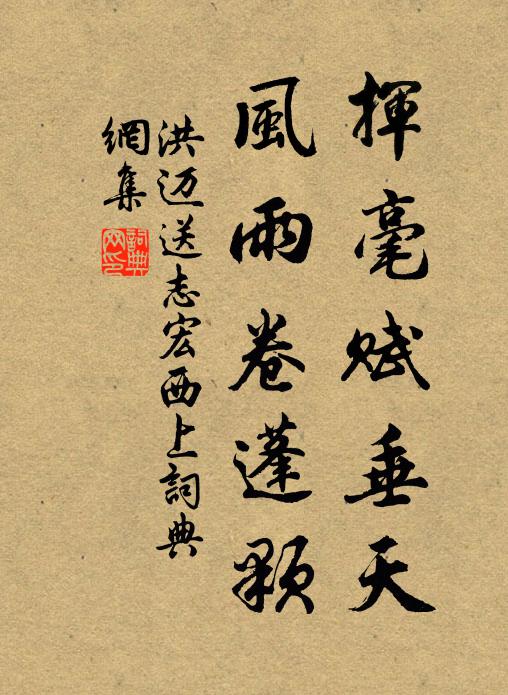 揮毫賦垂天
風雨卷蓬顆
洪迈送志宏西上詞典
網集
詞典
网印